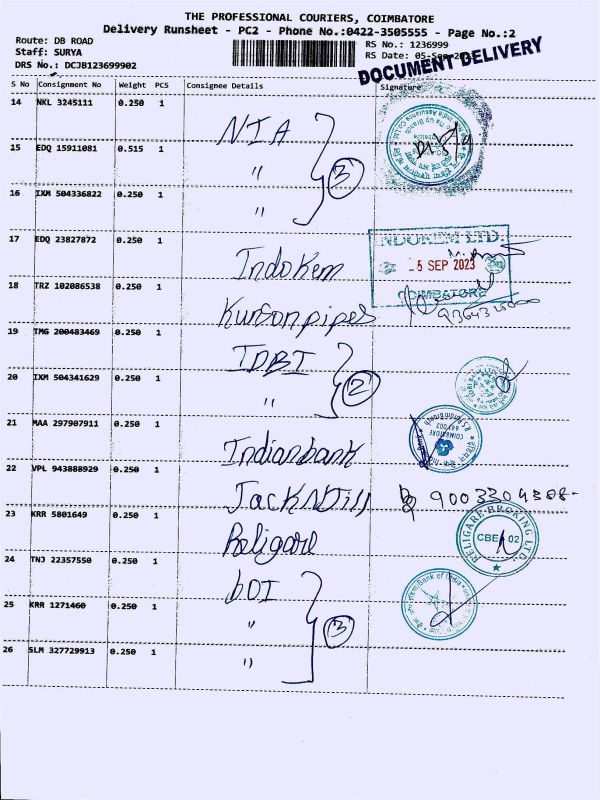 THE PROFESSIONAL COURIERS, COIMBATORE
Delivery Runsheet - PC2 - Phone No.:0422-3505555 - Page No.:2
Route: DB ROAD
Staff: SURYA
DRS No.: DCJB123699902
RS No.: 1236999
RS Date: 05-Sep
DOCUMENT DELIVERY
S No Consignment No Weight PCS Consignee Details Signature
14 NKL 3245111 0.250 1 NIA
15 EDQ 15911081 0.515 1 "
3
16 IXM 504336822 0.250 1 "
17 EDQ 23827872 0.250 1 Indokem
INDOKEM LTD.
- 5 SEP 2023
COIMBATORE
18 TRZ 102086538 0.250 1 Kursonpipes
19 TMG 200483469 0.250 1 IDBI
2
20 IXM 504341629 0.250 1 "
21 MAA 297907911 0.250 1 Indianbank
COIMBATORE
641 002
22 VPL 943888929 0.250 1 JackNJill 9003304308-
23 KRR 5801649 0.250 1 Religare
RELIGARE BROKING LTD.
CBE 02
24 TNJ 22357550 0.250 1 bOI
Bank of India
25 KRR 1271460 0.250 1 "
3
26 SLM 327729913 0.250 1 "